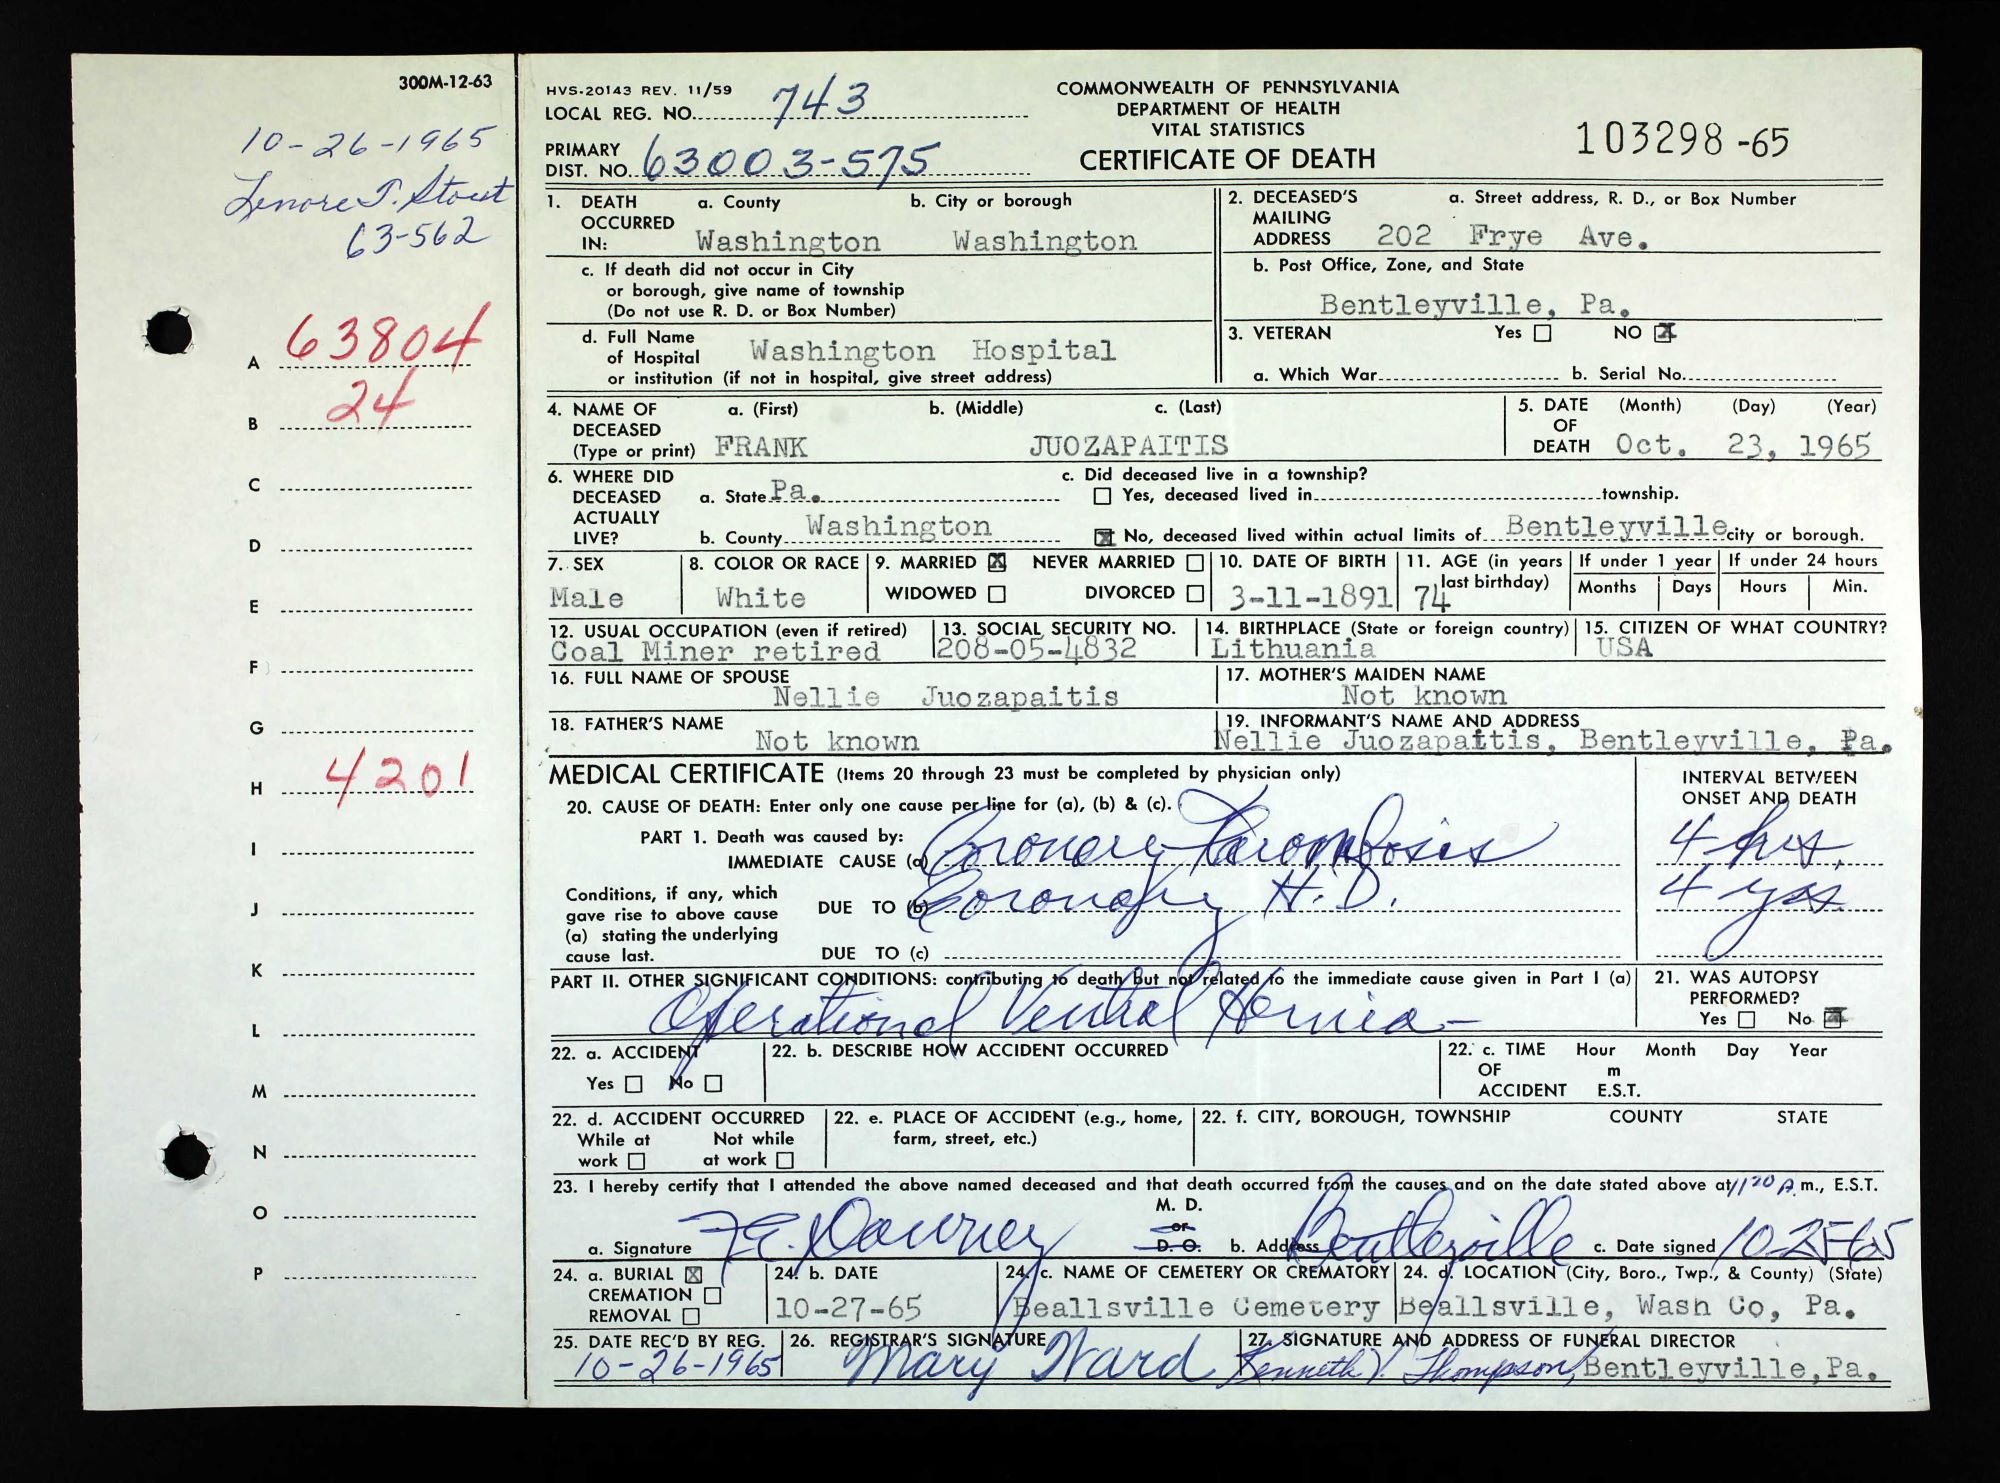 300M-12-63
10-26-1965
Lenore T. Stout
63-562
A 63804
B 24
C
D
E
F
G
H 4201
I
J
K
L
M
N
O
P
HVS-20143 REV. 11/59
LOCAL REG. NO. 743
PRIMARY
DIST. NO. 63003-575
COMMONWEALTH OF PENNSYLVANIA
DEPARTMENT OF HEALTH
VITAL STATISTICS
CERTIFICATE OF DEATH
103298-65
1. DEATH OCCURRED IN: a. County b. City or borough
Washington Washington
c. If death did not occur in City
or borough, give name of township
(Do not use R. D. or Box Number)
d. Full Name
of Hospital Washington Hospital
or institution (if not in hospital, give street address)
2. DECEASED'S MAILING ADDRESS a. Street address, R. D., or Box Number
202 Frye Ave.
b. Post Office, Zone, and State
Bentleyville, Pa.
3. VETERAN Yes ☐ NO ☒
a. Which War b. Serial No.
4. NAME OF DECEASED (Type or print) a. (First) b. (Middle) c. (Last)
FRANK JUOZAPAITIS
5. DATE OF DEATH (Month) (Day) (Year)
Oct. 23, 1965
6. WHERE DID DECEASED ACTUALLY LIVE?
a. State Pa.
b. County Washington
c. Did deceased live in a township?
☐ Yes, deceased lived in township.
☒ No, deceased lived within actual limits of Bentleyville city or borough.
7. SEX
Male
8. COLOR OR RACE
White
9. MARRIED ☒ NEVER MARRIED ☐
WIDOWED ☐ DIVORCED ☐
10. DATE OF BIRTH
3-11-1891
11. AGE (in years last birthday)
74
If under 1 year
Months Days
If under 24 hours
Hours Min.
12. USUAL OCCUPATION (even if retired)
Coal Miner retired
13. SOCIAL SECURITY NO.
208-05-4832
14. BIRTHPLACE (State or foreign country)
Lithuania
15. CITIZEN OF WHAT COUNTRY?
USA
16. FULL NAME OF SPOUSE
Nellie Juozapaitis
17. MOTHER'S MAIDEN NAME
Not known
18. FATHER'S NAME
Not known
19. INFORMANT'S NAME AND ADDRESS
Nellie Juozapaitis, Bentleyville, Pa.
MEDICAL CERTIFICATE (Items 20 through 23 must be completed by physician only)
20. CAUSE OF DEATH: Enter only one cause per line for (a), (b) & (c).
INTERVAL BETWEEN
ONSET AND DEATH
PART 1. Death was caused by:
IMMEDIATE CAUSE (a) Coronary Thrombosis 4 hrs.
Conditions, if any, which
gave rise to above cause
(a) stating the underlying
cause last.
DUE TO (b) Coronary H.D. 4 yrs.
DUE TO (c)
PART II. OTHER SIGNIFICANT CONDITIONS: contributing to death but not related to the immediate cause given in Part I (a)
Operational Ventral Hernia-
21. WAS AUTOPSY
PERFORMED?
Yes ☐ No ☒
22. a. ACCIDENT
Yes ☐ No ☐
22. b. DESCRIBE HOW ACCIDENT OCCURRED
22. c. TIME OF ACCIDENT Hour Month Day Year
m
E.S.T.
22. d. ACCIDENT OCCURRED
While at work ☐ Not while at work ☐
22. e. PLACE OF ACCIDENT (e.g., home,
farm, street, etc.)
22. f. CITY, BOROUGH, TOWNSHIP COUNTY STATE
23. I hereby certify that I attended the above named deceased and that death occurred from the causes and on the date stated above at 11 20 A.m., E.S.T.
M. D.
or
D. O.
a. Signature Downey b. Address Bentleyville c. Date signed 10-25-65
24. a. BURIAL ☒
CREMATION ☐
REMOVAL ☐
24. b. DATE
10-27-65
24. c. NAME OF CEMETERY OR CREMATORY
Beallsville Cemetery
24. d. LOCATION (City, Boro., Twp., & County) (State)
Beallsville, Wash Co, Pa.
25. DATE REC'D BY REG.
10-26-1965
26. REGISTRAR'S SIGNATURE
Mary Ward
27. SIGNATURE AND ADDRESS OF FUNERAL DIRECTOR
Kenneth V. Thompson, Bentleyville, Pa.